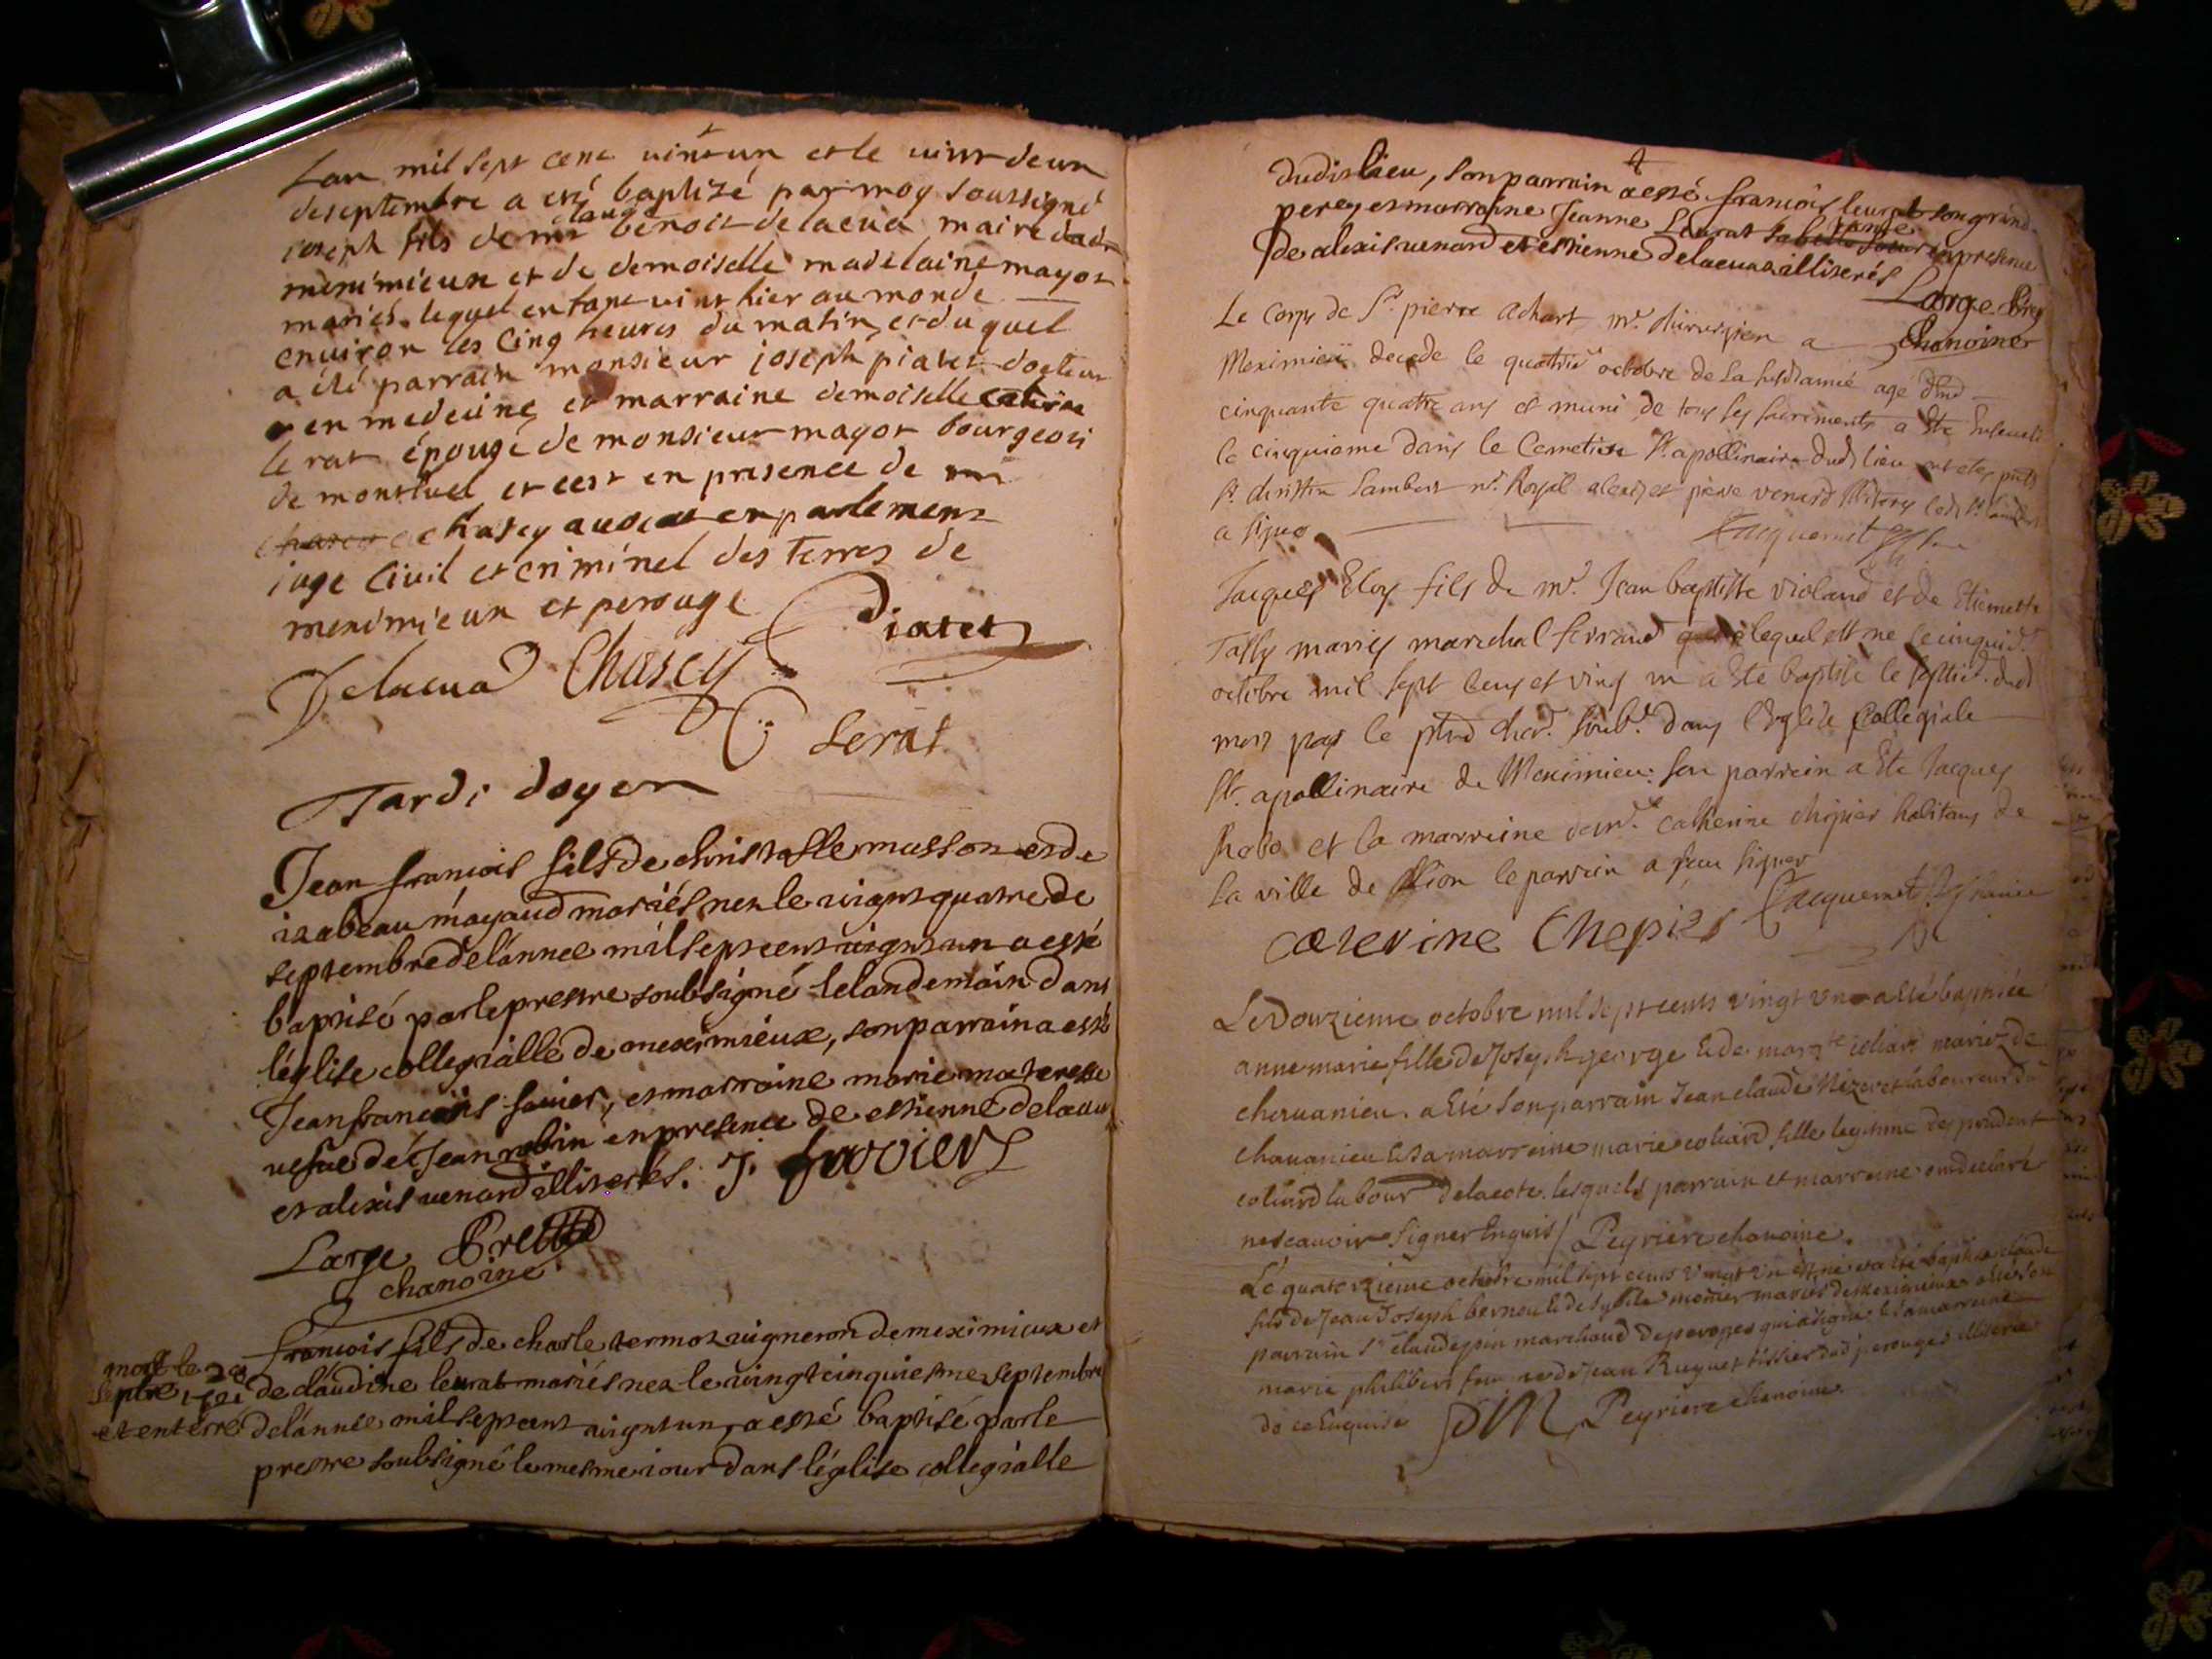 Lan mil sept cent vint un et le vint de un
deseptembre a eté baptizé par moy soussigné
joseph fils de mr claude benoit delacua maire dud
meximieux et de demoiselle madelaine mayot
mariés lequel enfant vint hier au monde
environ les cinq heures du matin et duquel
a été parrain monsieur joseph piatet docteur
en medecine et marraine demoiselle
lerat épouge de monsieur mayot bourgeois
de montluel et cest en presence de mr
chasey avocat en parlement
juge civil et criminel des terres de
meximieux et perouge
Piatet
Delacua Chasey
Lerat
Tardi doyen
Jean francois fils de christofle musson et de
izabeau mayaud mariés nez le vignt quatre de
septembre delánnee mil sept cent vignt un a esté
baptisé par le prestre soubsigné le landemain dans
léglise collegialle de meximieux, son parrain a esté
Jean francois favier, et marraine marie materesse
vefue de Jean robin en presence de estienne delacua
et alexis venard illiterés. J. favier
Large Prestre
chanoine
francois fils de charle termoz vigneron de meximieux et
mort le 28
septbre 1721 de claudine leurat mariés nez le vingt cinquiesme septembre
et enterré delánnée mil sept cent vignt un, a esté baptisé par le
prestre soubsigné le mesme iour dans léglise collegialle
dudit lieu, son parrain a esté francois leurat son grand
pere, et marraine Jeanne Leurat sa tante en presence
de alexis venard et estienne delacua illiterés
Large Pre
Le corps de Sr. pierre achart mr. chirurgien a chanoine
Meximieu decede le quatrie octobre de la susd année agé d'env
cinquante quatre ans et muni de tous ses sacrements a Ete Enseveli
le cinquieme dans le Cemetiere St. apollinaire dud lieu
Lambert nre. Royal alexis et pierre venard
a signé
Jacquemet
Jacques Eloy fils de mr. Jean baptiste violand et de Etiennette
Tassy mariés marechal ferrand lequel est ne le cinquie.
octobre mil sept Cens et ving un a Ete baptisé le septie. dud
mois par le pnt chan. soub. dans l'Eglise Collegiale
St. apollinaire de Meximieu: son parrein a Ete Jacques
Robo et la marreine catherine chepier habitans de
la ville de Lion le parrein a sceu signer
Jacquemet
Caterine Chepier
Le Douzieme octobre mil sept cents vingt un a esté baptisée
anne marie fille de Joseph george & de margte coliard mariez de
charuanieu. a Esté son parrain Jean claude Nizeret laboureur du
chavanieu & sa marreine marie coliard fille legitime de prudent
coliard labour delacote. lesquels parrain et marreine ont declaré
ne scavoir signer Enquis / Peyriere chanoine.
Le quatorzieme octobre mil sept cents vingt un est né et a Esté baptisé claude
fils de Jean Joseph bernou & de Sybile monier mariés de Meximieux a Esté son
parrain Sr claude pin marchand de perouges qui a signé & sa marreine
marie philibert fem de Jean Ruynet tissier dud perouges illiterée
de ce Enquise PIN Peyriere chanoine